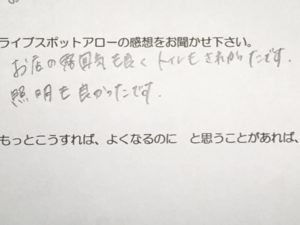 ライブスポットアローの感想をお聞かせ下さい。
お店の雰囲気も良くトイレもきれいだったです。
照明も良かったです。
もっとこうすれば、よくなるのに と思うことがあれば、